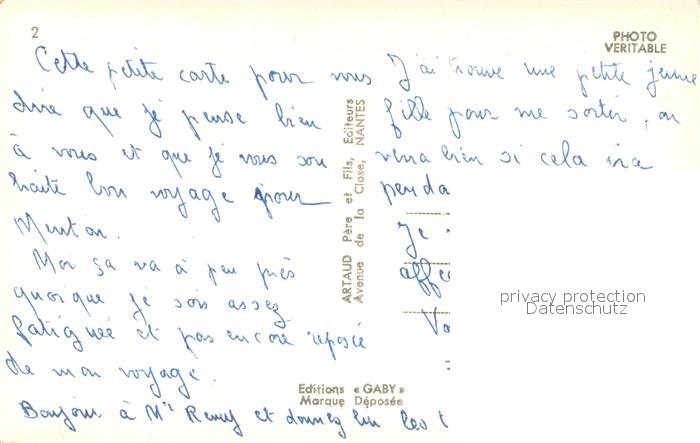 2
PHOTO
VERITABLE
Cette petite carte pour vous
dire que je pense bien
à vous et que je vous sou
haite bon voyage pour
Menton.
Moi ça va à peu près
quoique je sois assez
fatiguée et pas encore reposée
de mon voyage.
Bonjour à Mr Remy et donnez lui les
J'ai trouvé une petite jeune
fille pour me sortir, on
verra bien si cela ira
penda
Je
affec
Vo
ARTAUD Père et Fils, Editeurs
Avenue de la Close, NANTES
Editions « GABY »
Marque Déposée
privacy protection
Datenschutz